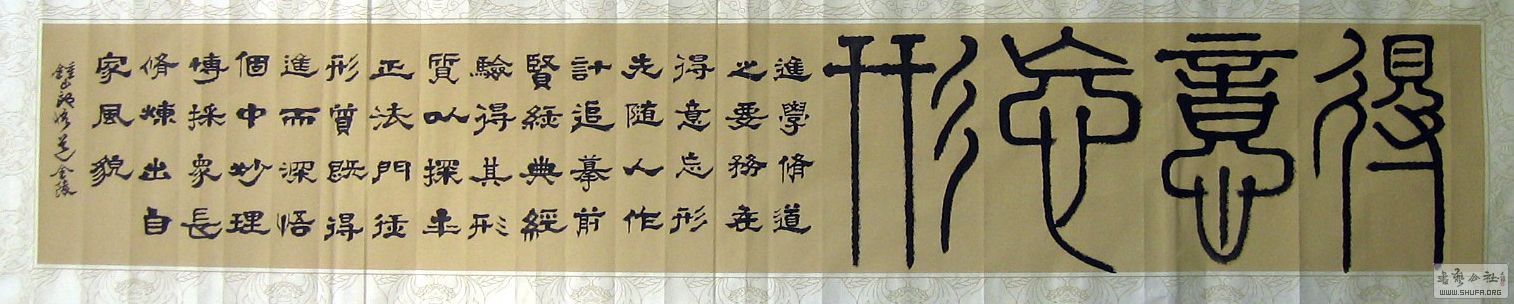 得意忘形
進學脩道
之要務在
得意忘形
先隨人作
計追摹前
賢經典經
驗得其形
質以探求
正法門徑
形質既得
進而深悟
個中妙理
博採眾長
脩煉出自
家風貌
鍾山 金陵
書藝公社
WWW.SHUFA.ORG